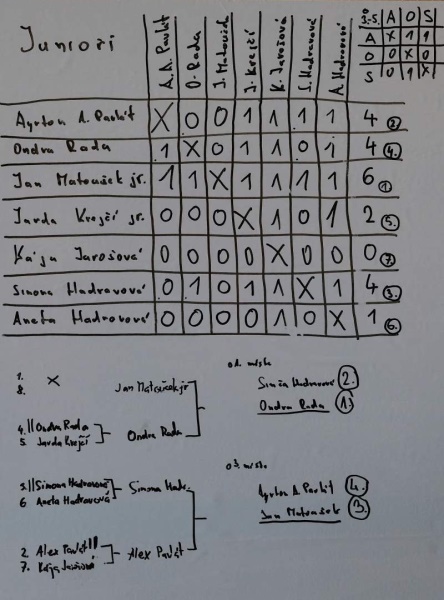 Junioři
A. A. Pavlát
O. Rada
J. Matoušek
J. Krejčí
K. Jarošová
S. Hadravová
A. Hadravová
3.-5. A O S
A X 1 1
O 0 X 0
S 0 1 X
Ayrton A. Pavlát X 0 0 1 1 1 1 4 2.
Ondra Rada 1 X 0 1 1 0 1 4 4.
Jan Matoušek jr. 1 1 X 1 1 1 1 6 1.
Jarda Krejčí jr. 0 0 0 X 1 0 1 2 5.
Kája Jarošová 0 0 0 0 X 0 0 0 7.
Simona Hadravová 0 1 0 1 1 X 1 4 3.
Aneta Hadravová 0 0 0 0 1 0 X 1 6.
1. X
8.
Jan Matoušek jr
4. || Ondra Rada
5. Jarda Krejčí
Ondra Rada
3. || Simona Hadravová
6 Aneta Hadravová
Simona Hadr.
2 Alex Pavlát ||
7. Kája Jarošová
Alex Pavlát
o 1. místo
Simča Hadravová 2.
Ondra Rada 1.
o 3. místo
Ayrton A. Pavlát 4.
Jan Matoušek 3.